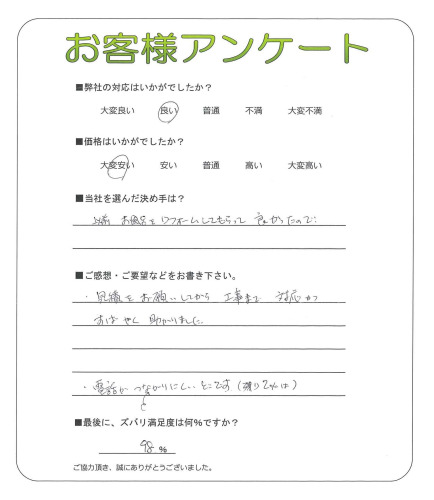 お客様アンケート
■弊社の対応はいかがでしたか？
大変良い 良い 普通 不満 大変不満
■価格はいかがでしたか？
大変安い 安い 普通 高い 大変高い
■当社を選んだ決め手は？
以前 お風呂をリフォームしてもらって 良かったので
■ご感想・ご要望などをお書き下さい。
・見積をお願いしてから 工事まで 対応が
すばやく 助かりました
・電話がつながりにくいとこです (残り2%は)
と
■最後に、ズバリ満足度は何%ですか？
98 %
ご協力頂き、誠にありがとうございました。